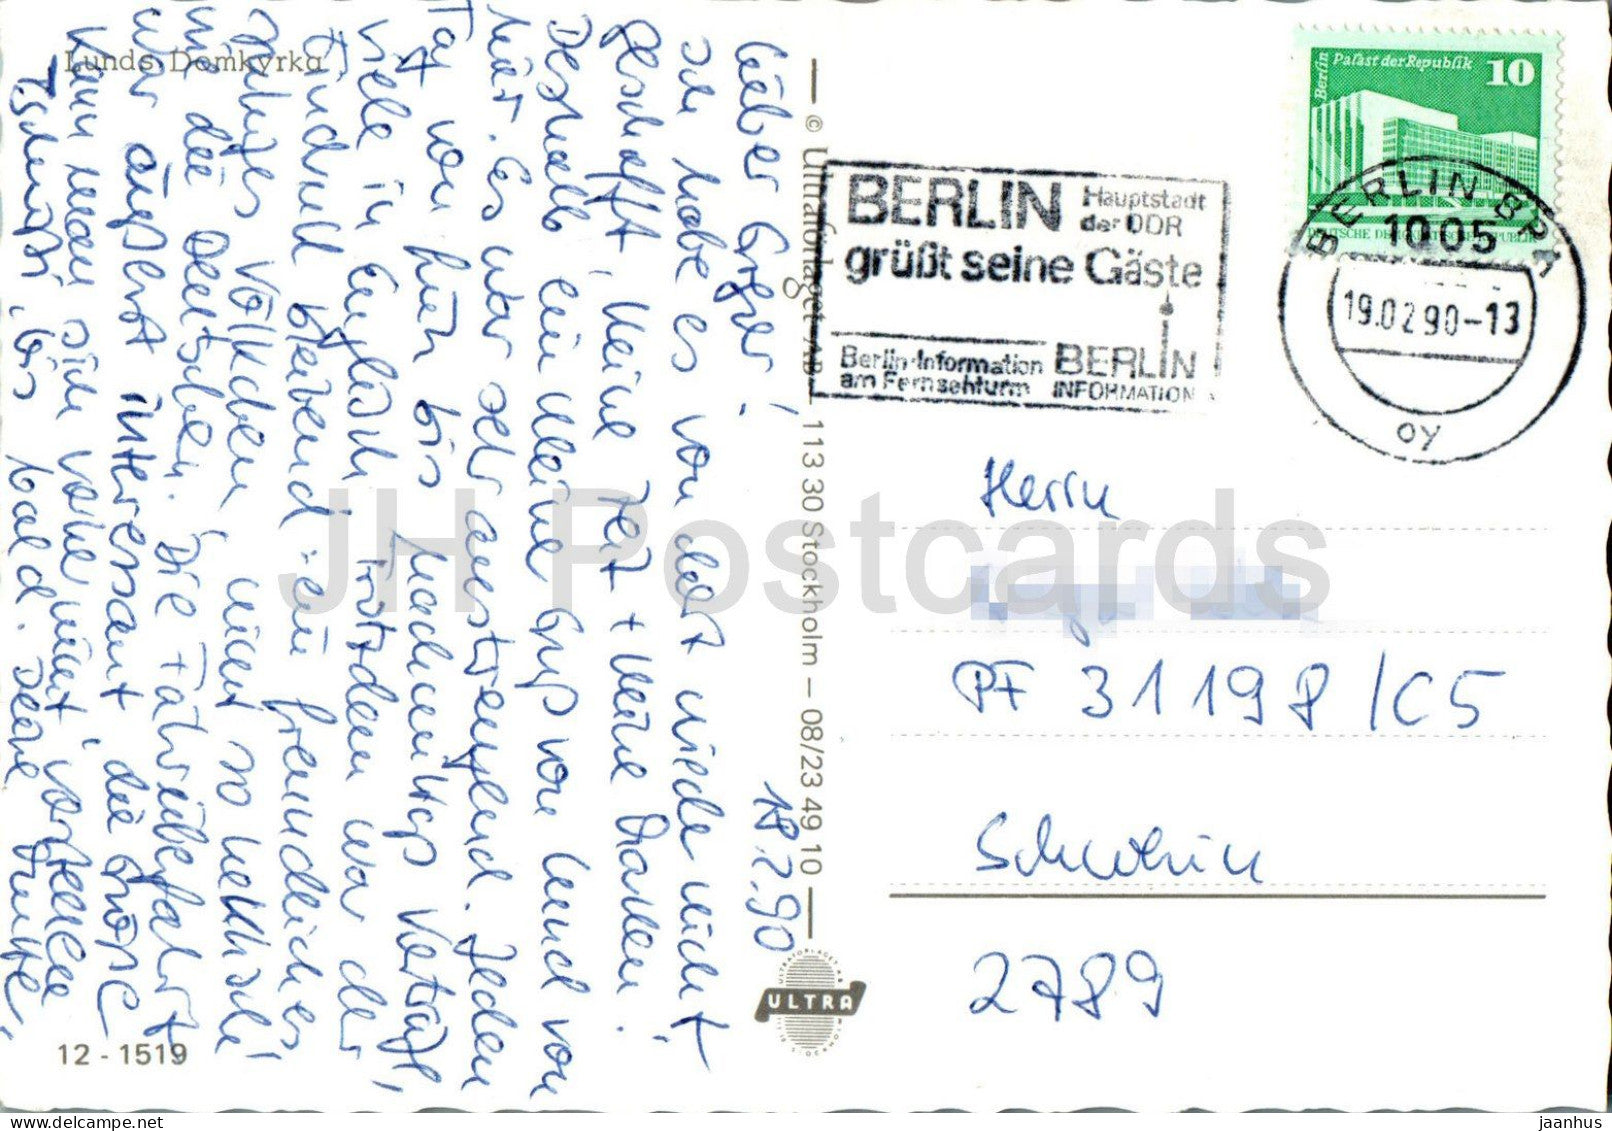 Lunds Domkyrka
18.2.90
Lieber Holger!
Ich habe es von dort nicht
geschafft, keine Zeit + keine Marken.
Deshalb ein kleiner Gruß von Lund von
hier. Es war sehr anstrengend. Jeden
Tag von früh bis nachmittags Verträge,
viele in Englisch. Trotzdem war der
Eindruck bleibend: ein freundliches
ruhiges Völkchen, nicht so hektisch
wie die Deutschen. Die Fährüberfahrt
war äußerst interessant, die Größe
kann man sich vorher nicht vorstellen
Tschüssi, bis bald. Deine
12 - 1519
© Ultraförlaget AB 113 30 Stockholm - 08/23 49 10
ULTRA
Berlin Palast der Republik 10
DEUTSCHE DEMOKRATISCHE REPUBLIK
BERLIN Hauptstadt der DDR
grüßt seine Gäste
Berlin-Information am Fernsehturm
BERLIN INFORMATION
BERLIN BPA
1005
19.02.90-13
oy
Herrn
PF 31198/C5
Schwerin
2789
JH Postcards
jaanhus